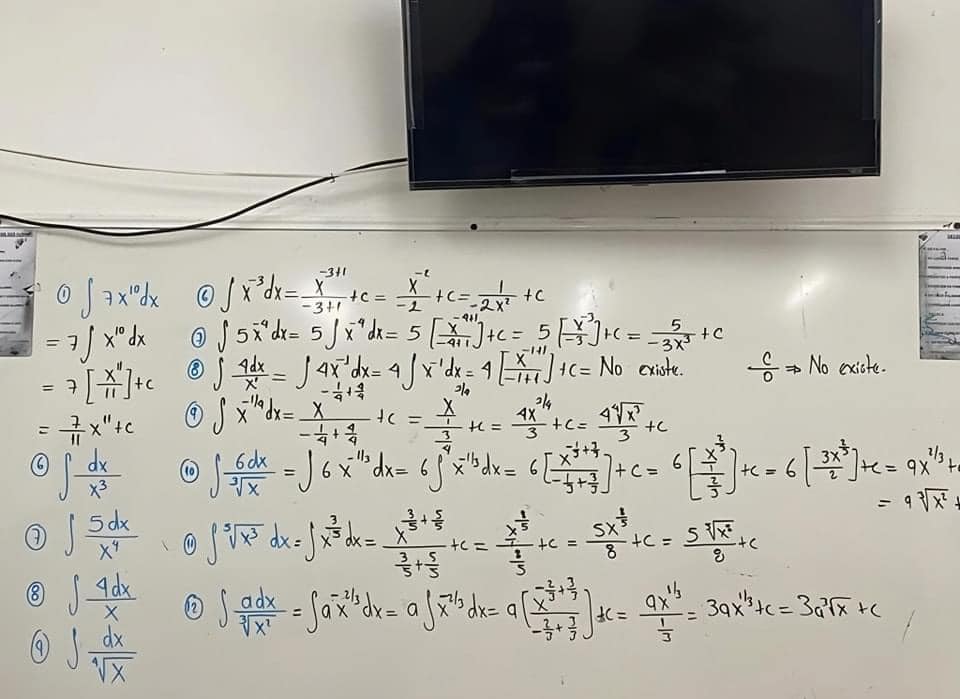 ① ∫ 7x¹⁰dx
= 7∫ x¹⁰ dx
= 7 [x¹¹/11] +c
= 7/11 x¹¹ +c
⑥ ∫ dx/x³
⑦ ∫ 5dx/x⁴
⑧ ∫ 4dx/x
⑨ ∫ dx/⁴√x
⑥ ∫ x⁻³dx = x⁻³⁺¹/-3+1 +c = x⁻²/-2 +c = 1/-2x² +c
⑦ ∫ 5x⁻⁴dx = 5∫ x⁻⁴dx = 5 [x⁻⁴⁺¹/-4+1] +c = 5 [x⁻³/-3] +c = 5/-3x³ +c
⑧ ∫ 4dx/x¹ = ∫ 4x⁻¹dx = 4∫ x⁻¹dx = 4 [x⁻¹⁺¹/-1+1] +c = No existe. c/0 ⇒ No existe.
⑨ ∫ x^(-1/4)dx = x^(-1/4+4/4)/(-1/4+4/4) +c = (x^(3/4)/1)/(3/4) +c = 4x^(3/4)/3 +c = 4⁴√x³/3 +c
⑩ ∫ 6dx/³√x = ∫ 6x^(-1/3)dx = 6∫ x^(-1/3)dx = 6 [x^(-1/3+3/3)/(-1/3+3/3)] +c = 6 [(x^(2/3)/1)/(2/3)] +c = 6 [3x^(2/3)/2] +c = 9x^(2/3) +c
= 9 ³√x² +
⑪ ∫ ⁵√x³ dx = ∫ x^(3/5)dx = x^(3/5+5/5)/(3/5+5/5) +c = (x^(8/5)/1)/(8/5) +c = 5x^(8/5)/8 +c = 5 ⁵√x⁸/8 +c
⑫ ∫ adx/³√x² = ∫ ax^(-2/3)dx = a∫ x^(-2/3)dx = a [x^(-2/3+3/3)/(-2/3+3/3)] +c = ax^(1/3)/(1/3) = 3ax^(1/3) +c = 3a³√x +c